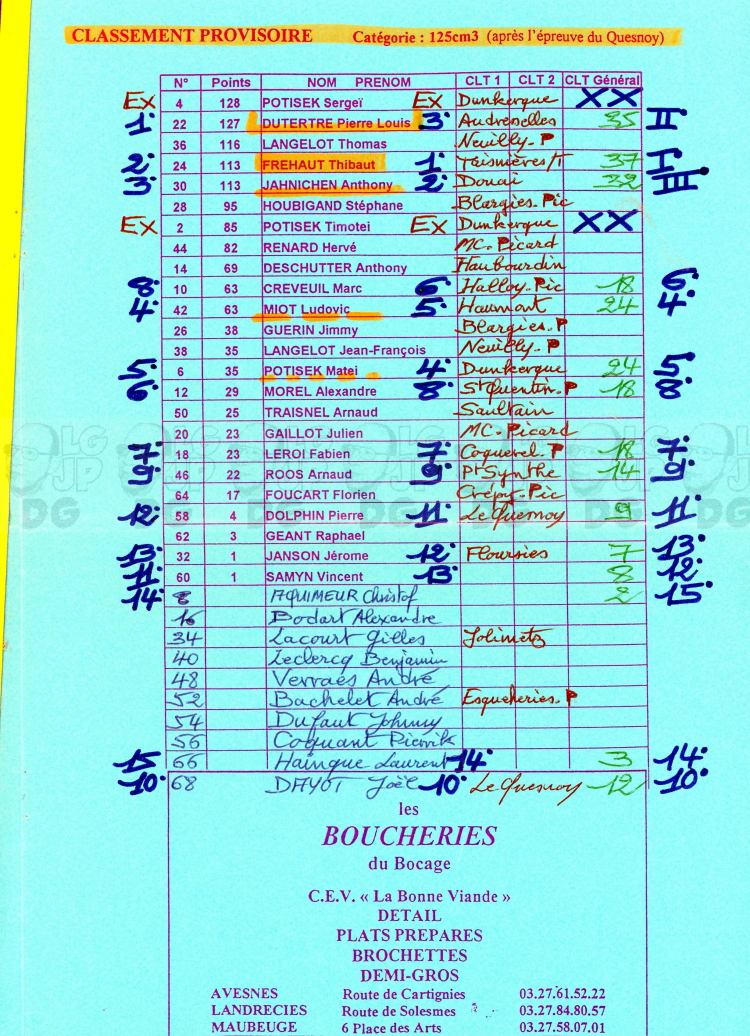 CLASSEMENT PROVISOIRE Catégorie : 125cm3 (après l'épreuve du Quesnoy)
N° Points NOM PRENOM CLT 1 CLT 2 CLT Général
Ex 4 128 POTISEK Sergeï Ex Dunkerque XX
1° 22 127 DUTERTRE Pierre Louis 3° Audreselles 35 II°
36 116 LANGELOT Thomas Neuilly. P
2° 24 113 FREHAUT Thibaut 1° Taisnières/T 37 I°
3° 30 113 JAHNICHEN Anthony 2° Douai 32 III°
28 95 HOUBIGAND Stéphane Blargies. Pic
Ex 2 85 POTISEK Timotei Ex Dunkerque XX
44 82 RENARD Hervé MC. Picard
14 69 DESCHUTTER Anthony Haubourdin
8° 10 63 CREVEUIL Marc 6° Halloy. Pic 18 6°
4° 42 63 MIOT Ludovic 5° Haumont 24 4°
26 38 GUERIN Jimmy Blargies. P
38 35 LANGELOT Jean-François Neuilly. P
5° 6 35 POTISEK Matei 4° Dunkerque 24 5°
6° 12 29 MOREL Alexandre 8° St Quentin. P 18 8°
50 25 TRAISNEL Arnaud Saultain
20 23 GAILLOT Julien MC. Picard
7° 18 23 LEROI Fabien 7° Coquerel. P 18 7°
9° 46 22 ROOS Arnaud 9° Pt Synthe 14 9°
64 17 FOUCART Florien Crépy. Pic
12° 58 4 DOLPHIN Pierre 11° Le Quesnoy 9 11°
62 3 GEANT Raphael
13° 32 1 JANSON Jérome 12° Floursies 7 13°
11° 60 1 SAMYN Vincent 13° 8 12°
14° 8 AQUIMEUR Christof 2 15°
16 Bodart Alexandre
34 Lacourt Gilles Jolimetz
40 Leclercq Benjamin
48 Verraes André
52 Bachelet André Esqueheries. P
54 Dufaut Johnny
56 Coquant Pierrik
15° 66 Hainque Laurent 14° 3 14°
10° 68 DAYOT Joël 10° Le Quesnoy 12 10°
les
BOUCHERIES
du Bocage
C.E.V. « La Bonne Viande »
DETAIL
PLATS PREPARES
BROCHETTES
DEMI-GROS
AVESNES Route de Cartignies 03.27.61.52.22
LANDRECIES Route de Solesmes 03.27.84.80.57
MAUBEUGE 6 Place des Arts 03.27.58.07.01